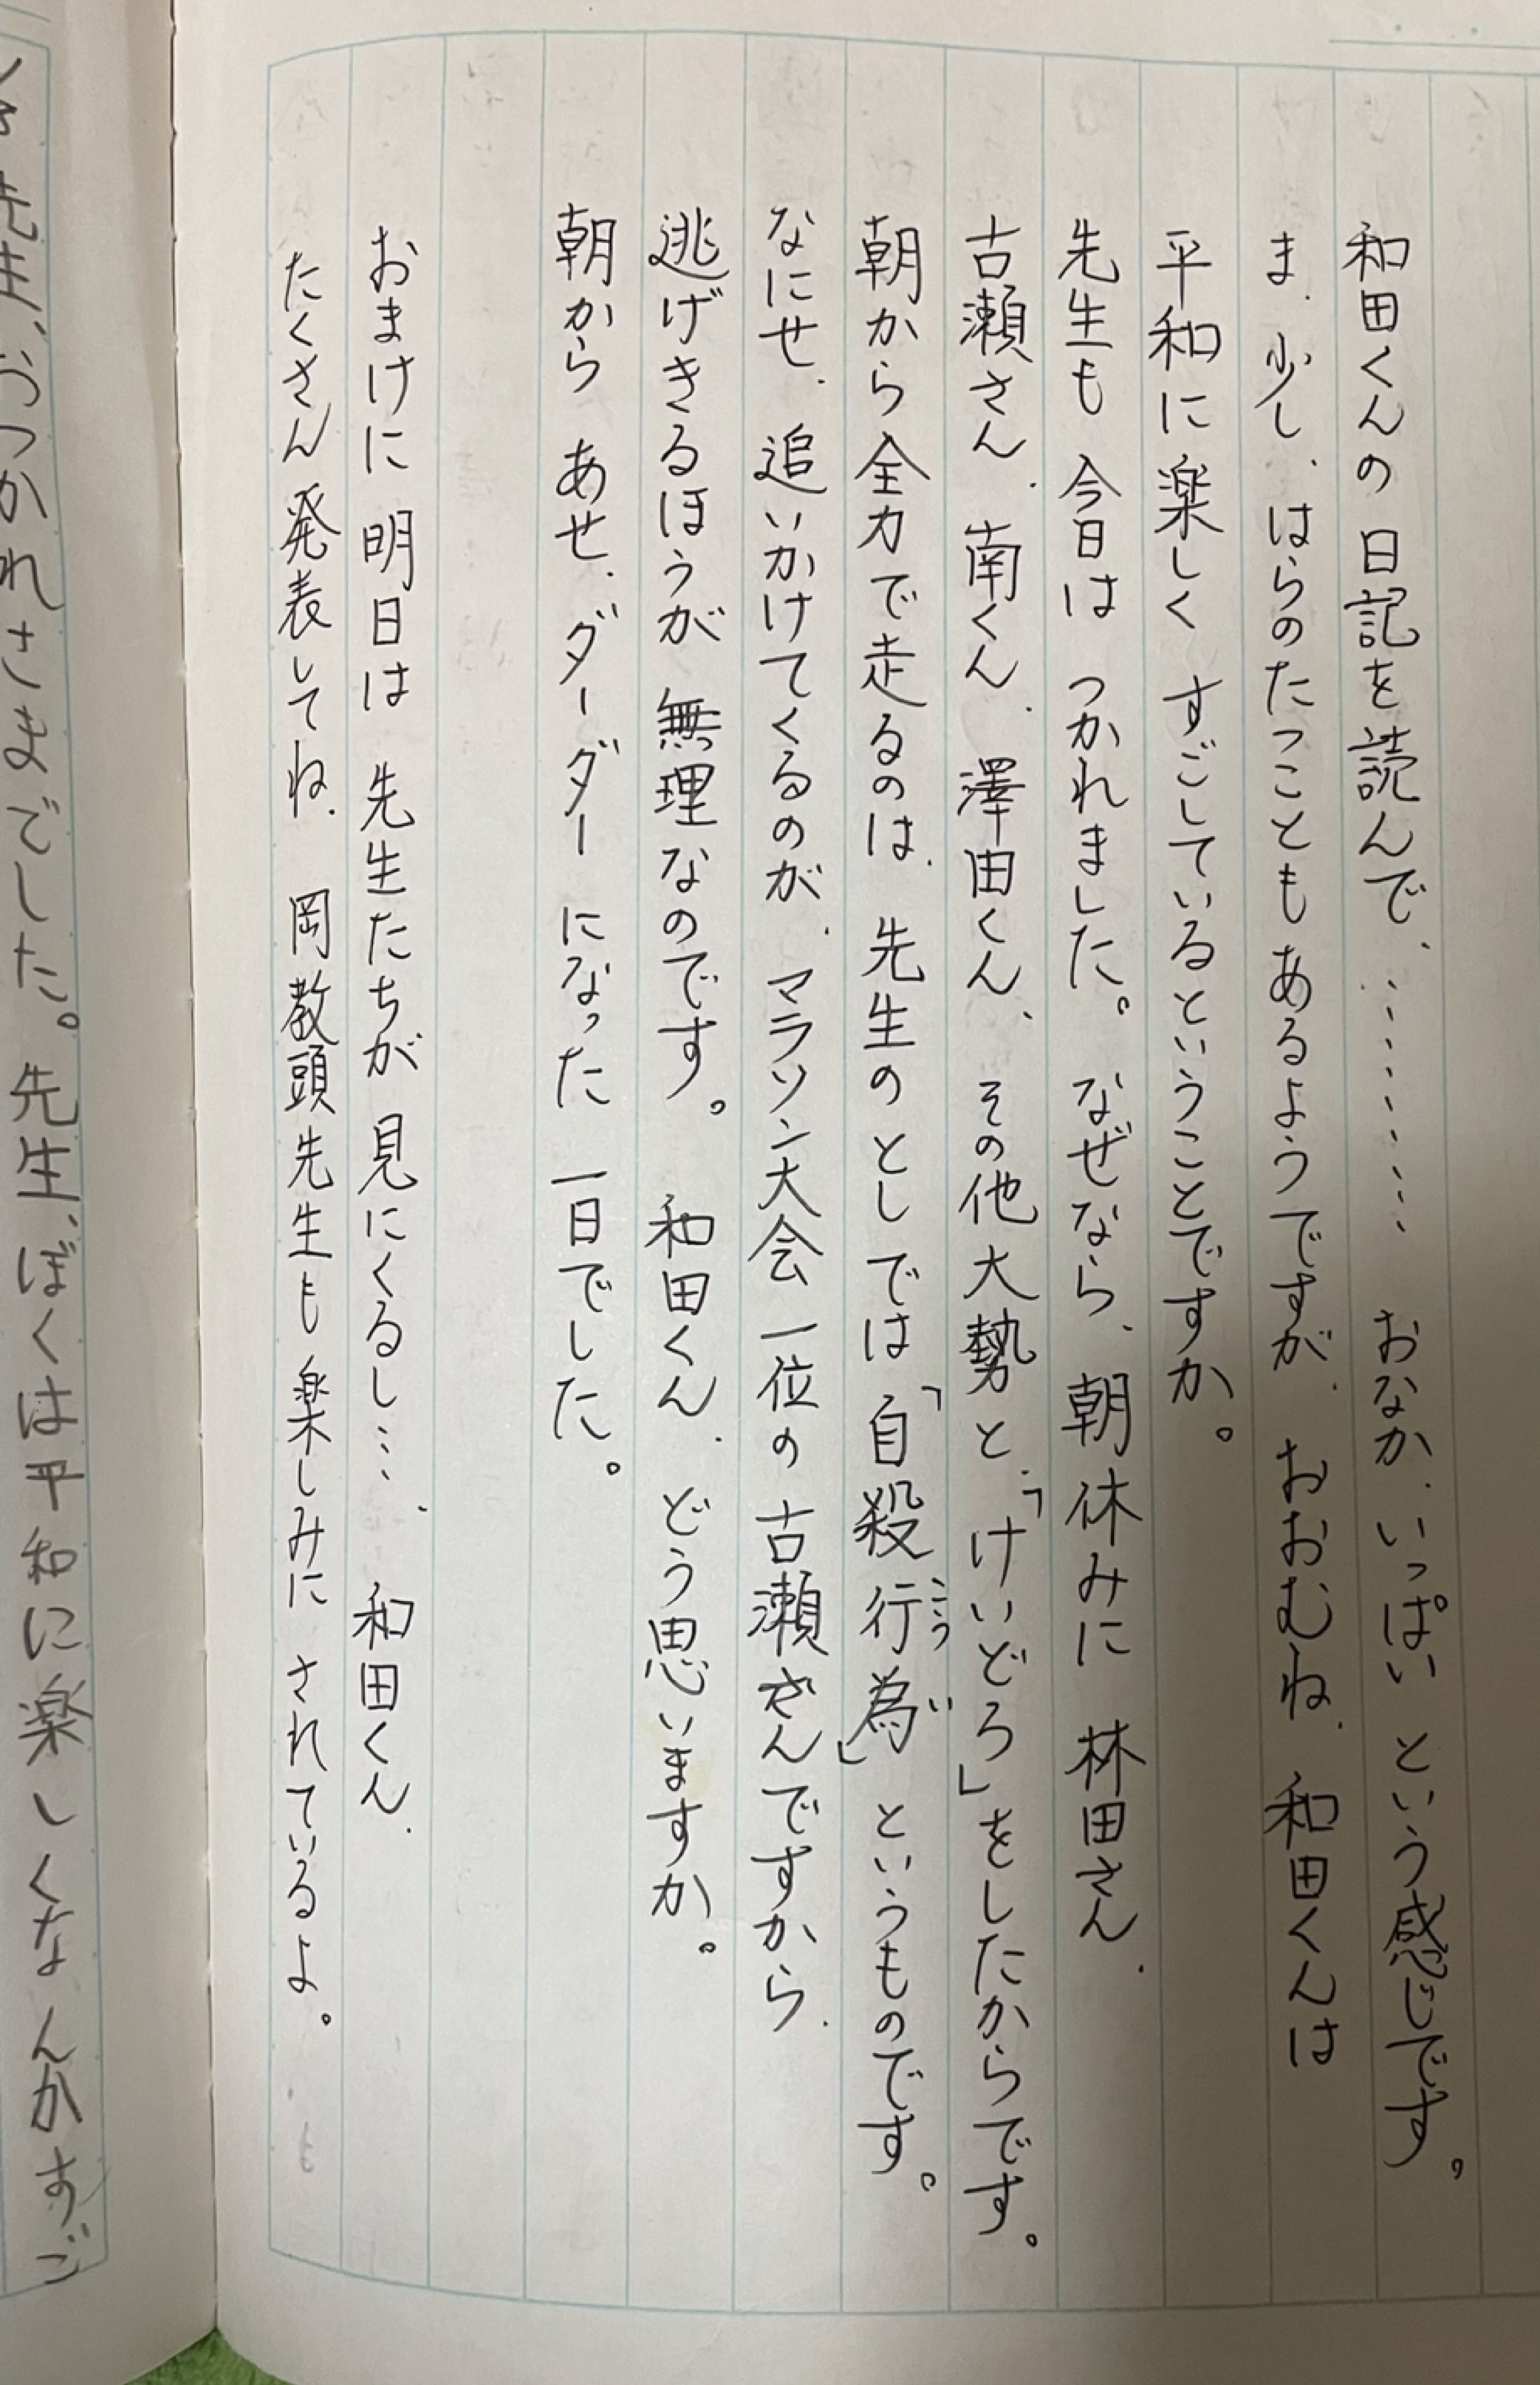 和田くんの日記を読んで、………… おなか、いっぱい という感じです。
ま、少し、はらのたつこともあるようですが、おおむね、和田くんは
平和に楽しく すごしているということですか。
先生も 今日は つかれました。なぜなら、朝休みに 林田さん、
古瀬さん、南くん、澤田くん、その他大勢と、「けいどろ」をしたからです。
朝から全力で走るのは、先生の としでは「自殺行為」というものです。
こう い
なにせ、追いかけてくるのが、マラソン大会 一位の 古瀬さんですから、
逃げきるほうが 無理なのです。 和田くん、どう思いますか。
朝から あせ、ダーダー になった 一日でした。
おまけに 明日は 先生たちが 見にくるし…、 和田くん、
たくさん 発表してね、 岡教頭先生も 楽しみに されているよ。
先生、おつかれさまでした。先生、ぼくは平和に楽しくなんかすご